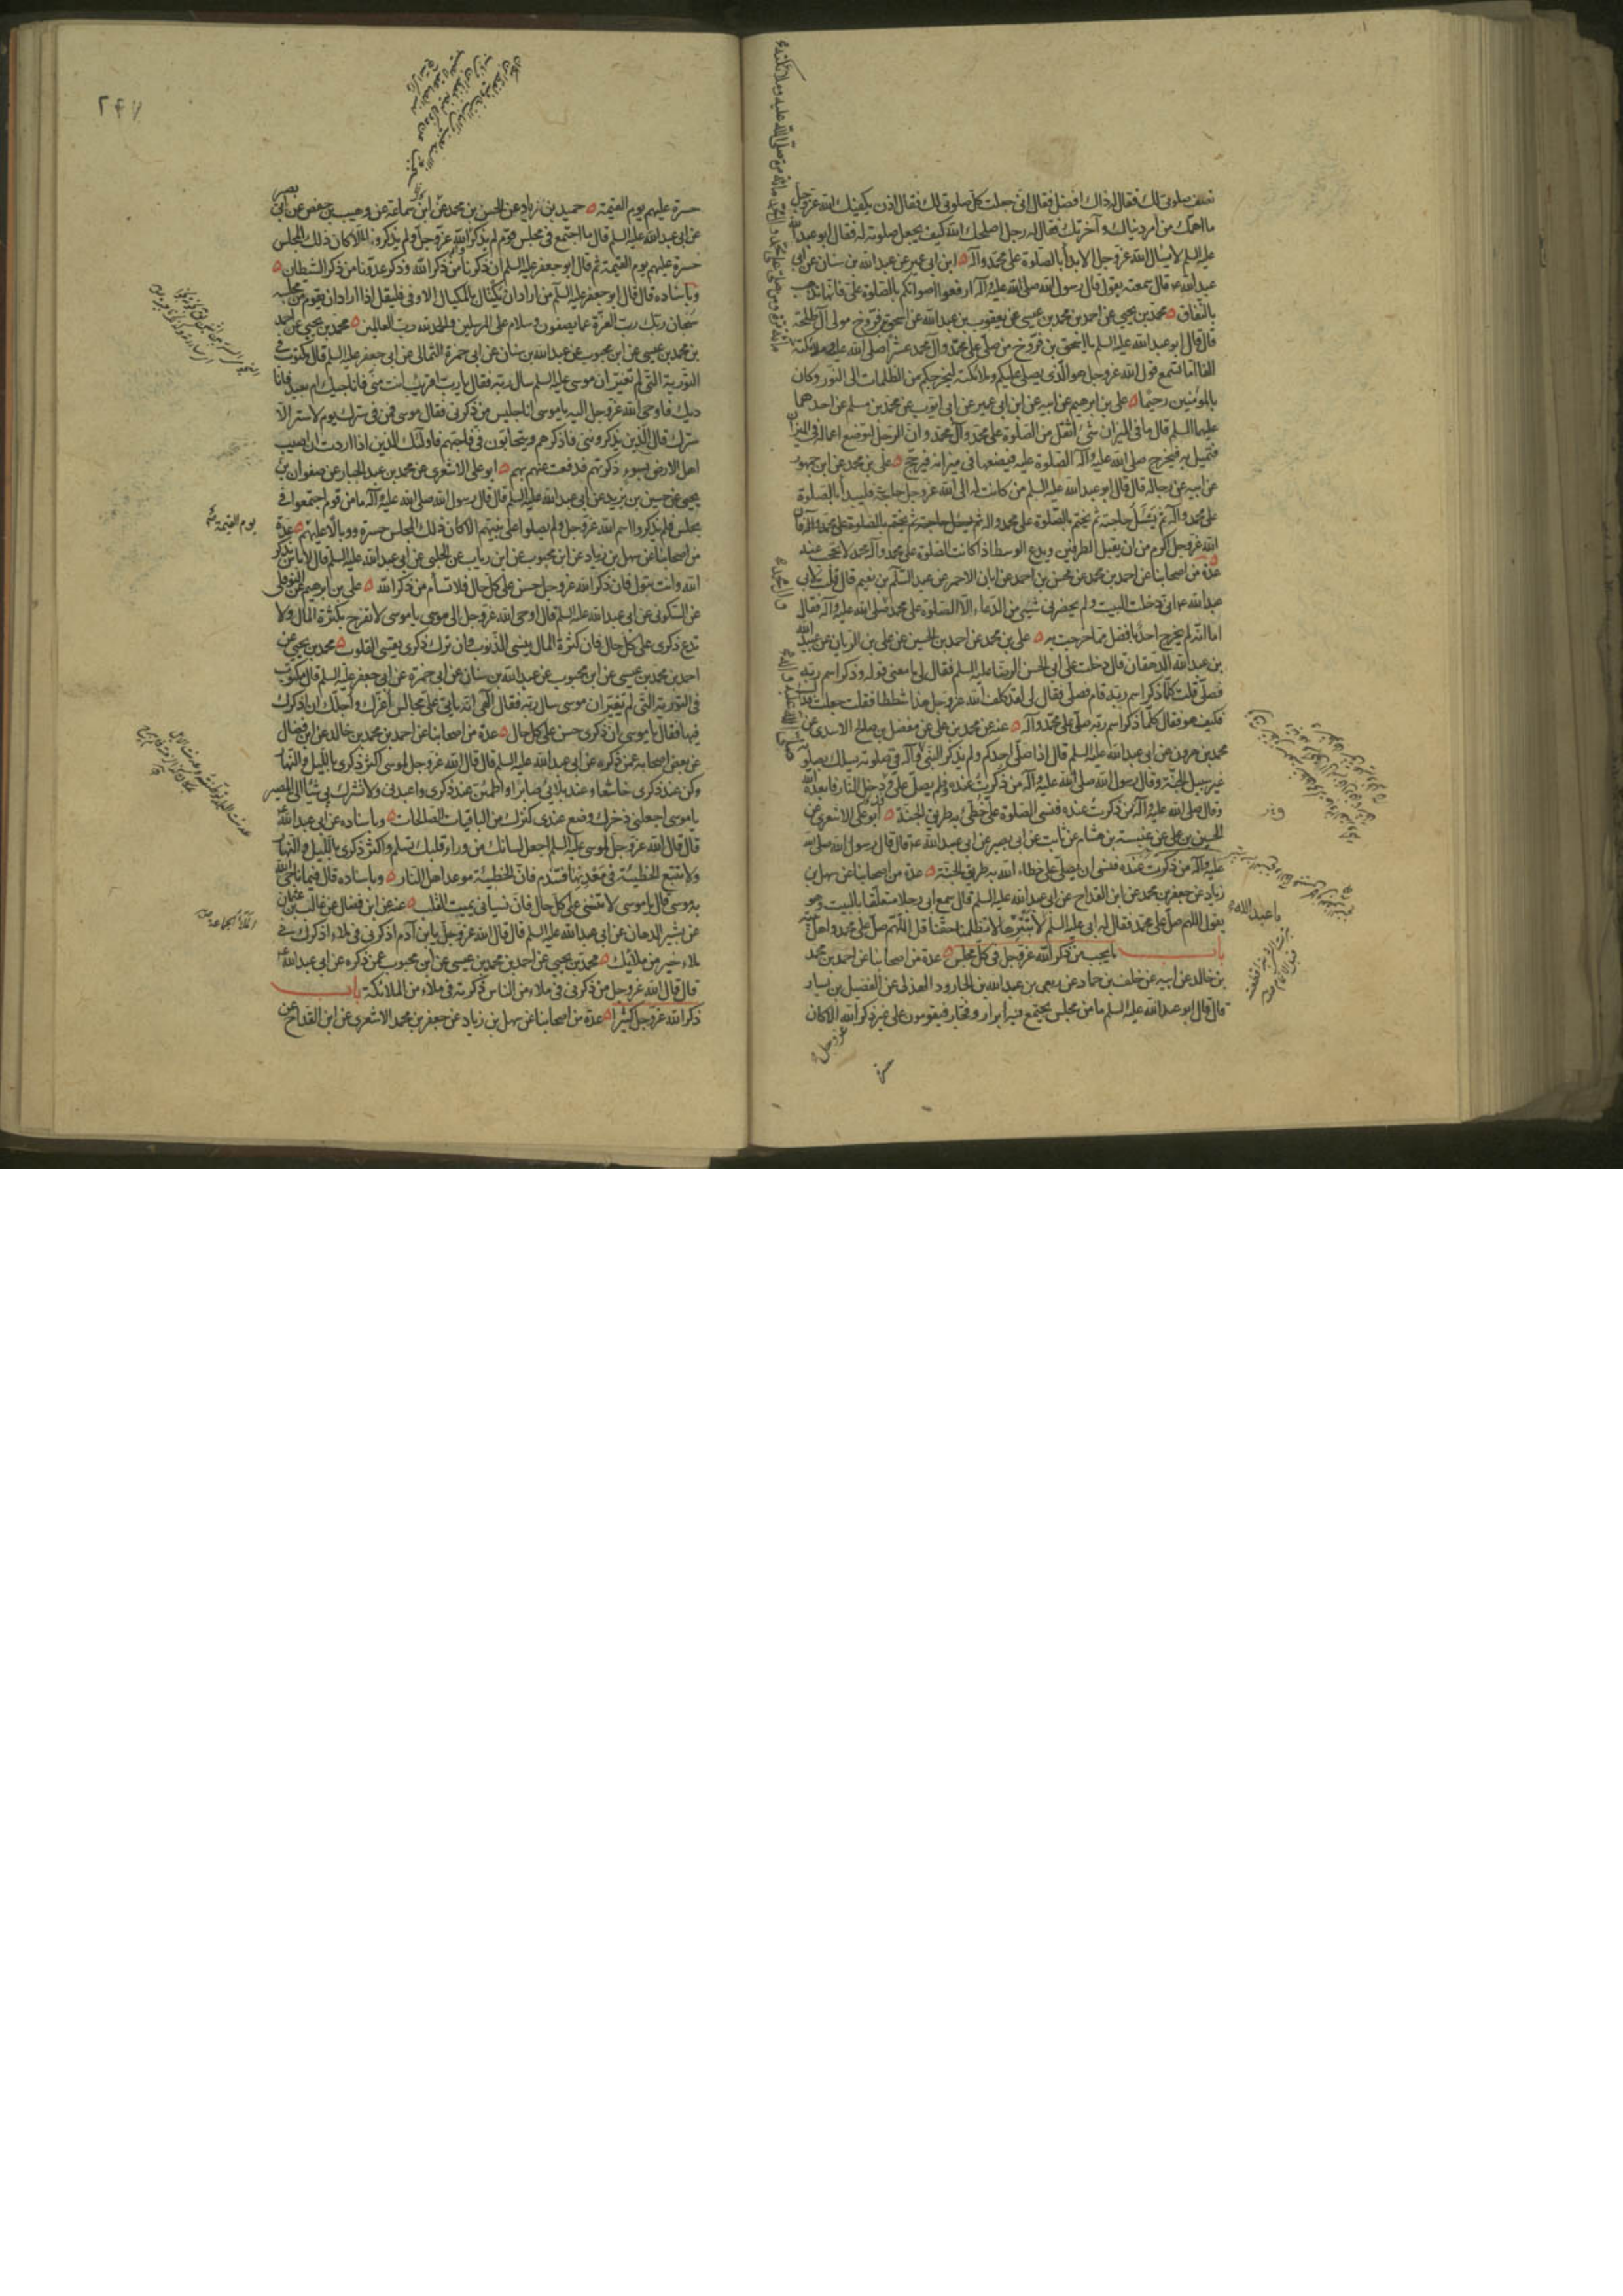 نصف صلوتى لك فقال له ذاك افضل فقال انى جعلت كل صلوتى لك فقال اذن يكفيك الله عز وجل
ما اهمك من امر دنياك و آخرتك فقال له رجل اصلحك الله كيف يجعل صلوته له فقال ابو عبد الله
عليه السلم لا يسال الله عز وجل الا بدأ بالصلوة على محمد وآله ابن ابى عمير عن عبد الله بن سنان عن ابى
عبد الله ع قال سمعته يقول قال رسول الله صلى الله عليه وآله ارفعوا اصواتكم بالصلوة على فانها تذهب
بالنفاق محمد بن يحيى عن احمد بن محمد بن عيسى عن يعقوب بن عبد الله عن اسحق بن فروخ مولى آل طلحة
قال قال ابو عبد الله عليه السلم يا اسحق بن فروخ من صلى على محمد وآل محمد عشرا صلى الله عليه وملائكته
الفا اما تسمع قول الله عز وجل هو الذى يصلى عليكم وملائكته ليخرجكم من الظلمات الى النور وكان
بالمؤمنين رحيما على بن ابرهيم عن ابيه عن ابن ابى عمير عن ابى ايوب عن محمد بن مسلم عن احدهما
عليهما السلم قال ما فى الميزان شئ اثقل من الصلوة على محمد وآل محمد وان الرجل لتوضع اعماله فى الميزان
فتميل به فيخرج صلى الله عليه وآله الصلوة عليه فيضعها فى ميزانه فيرجح على بن محمد عن ابن جمهور
عن ابيه عن رجاله قال قال ابو عبد الله عليه السلم من كانت له الى الله عز وجل حاجة فليبدأ بالصلوة
على محمد وآله ثم يسئل حاجته ثم يختم بالصلوة على محمد وآله فان
الله عز وجل اكرم من ان يقبل الطرفين ويدع الوسط اذا كانت الصلوة على محمد وآل محمد لا تحجب عنه
عدة من اصحابنا عن احمد بن محمد عن محسن بن احمد عن ابان الاحمر عن عبد السلم بن نعيم قال قلت لابى
عبد الله ع انى دخلت البيت ولم يحضرنى شئ من الدعاء الا الصلوة على محمد صلى الله عليه وآله فقال
اما انه لم يخرج احد بافضل مما خرجت به على بن محمد عن احمد بن الحسين عن على بن الريان عن عبيد الله
بن عبد الله الدهقان قال دخلت على ابى الحسن الرضا عليه السلم فقال لى ما معنى قوله وذكر اسم ربه
فصلى قلت كلما ذكر اسم ربه قام فصلى فقال لى لقد كلف الله عز وجل هذا شططا فقلت جعلت فداك
فكيف هو فقال كلما ذكر اسم ربه صلى على محمد وآله عنه عن محمد بن على عن مفضل بن صالح الاسدى عن
محمد بن هرون عن ابى عبد الله عليه السلم قال اذا صلى احدكم ولم يذكر النبى وآله فى صلوته يسلك بصلوته
غير سبيل الجنة وقال رسول الله صلى الله عليه وآله من ذكرت عنده فلم يصل على فدخل النار فابعده الله
وقال صلى الله عليه وآله من ذكرت عنده فنسى الصلوة على خطئ به طريق الجنة ابو على الاشعرى عن
الحسين بن على عن عبيس بن هشام عن ثابت عن ابى بصير عن ابى عبد الله ع قال قال رسول الله صلى الله
عليه وآله من ذكرت عنده فنسى ان يصلى على خطاء الله به طريق الجنة عدة من اصحابنا عن سهل بن
زياد عن جعفر بن محمد عن ابن القداح عن ابى عبد الله عليه السلم قال سمع ابى رجلا متعلقا بالبيت وهو
يقول اللهم صل على محمد فقال له ابى عليه السلم لا تبترها لا تظلمنا حقنا قل اللهم صل على محمد واهل بيته
باب ما يجب من ذكر الله عز وجل فى كل مجلس عدة من اصحابنا عن احمد بن محمد
بن خالد عن ابيه عن خلف بن حماد عن ربعى بن عبد الله بن الجارود الهذلى عن الفضيل بن يسار
قال قال ابو عبد الله عليه السلم ما من مجلس يجتمع فيه ابرار وفجار فيقومون على غير ذكر الله الا كان
عز وجل
يا عبد الله
٢٤٧
حسرة عليهم يوم القيمة حميد بن زياد عن الحسن بن محمد عن ابن سماعة عن وهيب بن حفص عن ابى بصير
عن ابى عبد الله عليه السلم قال ما اجتمع فى مجلس قوم لم يذكروا الله عز وجل ولم يذكرونا الا كان ذلك المجلس
حسرة عليهم يوم القيمة ثم قال ابو جعفر عليه السلم ان ذكرنا من ذكر الله وذكر عدونا من ذكر الشيطان
وباسناده قال قال ابو جعفر عليه السلم من اراد ان يكتال بالمكيال الاوفى فليقل اذا اراد ان يقوم من مجلسه
سبحان ربك رب العزة عما يصفون وسلام على المرسلين والحمد لله رب العالمين محمد بن يحيى عن احمد
بن محمد بن عيسى عن ابن محبوب عن عبد الله بن سنان عن ابى حمزة الثمالى عن ابى جعفر عليه السلم قال مكتوب فى
التورية التى لم تغير ان موسى عليه السلم سال ربه فقال يا رب اقريب انت منى فاناجيك ام بعيد فانا
ديك فاوحى الله عز وجل اليه يا موسى انا جليس من ذكرنى فقال موسى فمن فى سترك يوم لا ستر الا
سترك قال الذين يذكروننى فاذكرهم ويتحابون فى فاحبهم فاولئك الذين اذا اردت ان اصيب
اهل الارض بسوء ذكرتهم فدفعت عنهم بهم ابو على الاشعرى عن محمد بن عبد الجبار عن صفوان بن
يحيى عن حسين بن يزيد عن ابى عبد الله عليه السلم قال قال رسول الله صلى الله عليه وآله ما من قوم اجتمعوا فى
مجلس فلم يذكروا اسم الله عز وجل ولم يصلوا على نبيهم الا كان ذلك المجلس حسرة ووبالا عليهم عدة
يوم القيمة
من اصحابنا عن سهل بن زياد عن ابن محبوب عن ابن رياب عن الحلبى عن ابى عبد الله عليه السلم قال لا باس بذكر
الله وانت تبول فان ذكر الله عز وجل حسن على كل حال فلا تسأم من ذكر الله على بن ابرهيم عن النوفلى
عن السكونى عن ابى عبد الله عليه السلم قال اوحى الله عز وجل الى موسى يا موسى لا تفرح بكثرة المال ولا
تدع ذكرى على كل حال فان كثرة المال ينسى الذنوب وان ترك ذكرى يقسى القلوب محمد بن يحيى عن
احمد بن محمد بن عيسى عن ابن محبوب عن عبد الله بن سنان عن ابى حمزة عن ابى جعفر عليه السلم قال مكتوب
فى التورية التى لم تغير ان موسى سال ربه فقال الهى انه ياتى على مجالس اعزك واجلك ان اذكرك
فيها فقال يا موسى ان ذكرى حسن على كل حال عدة من اصحابنا عن احمد بن محمد بن خالد عن ابن فضال
عن بعض اصحابه عمن ذكره عن ابى عبد الله عليه السلم قال قال الله عز وجل لموسى اكثر ذكرى بالليل والنهار
وكن عند ذكرى خاشعا وعند بلائى صابرا واطمئن عند ذكرى واعبدنى ولا تشرك بى شيئا الى المصير
يا موسى اجعلنى ذخرك وضع عندى كنزك من الباقيات الصالحات وباسناده عن ابى عبد الله
قال قال الله عز وجل لموسى عليه السلم اجعل لسانك من وراء قلبك تسلم واكثر ذكرى بالليل والنهار
ولا تتبع الخطيئة فى معدنها فتندم فان الخطيئة موعد اهل النار وباسناده قال فيما ناجى الله
به موسى قال يا موسى لا تنسنى على كل حال فان نسيانى يميت القلب عنه عن ابن فضال عن غالب بن عثمان
عن بشير الدهان عن ابى عبد الله عليه السلم قال قال الله عز وجل يا بن آدم اذكرنى فى ملاء اذكرك فى
ملاء خير من ملائك محمد بن يحيى عن احمد بن محمد بن عيسى عن ابن محبوب عمن ذكره عن ابى عبد الله
قال قال الله عز وجل من ذكرنى فى ملاء من الناس ذكرته فى ملاء من الملائكة باب
ذكر الله عز وجل كثيرا عدة من اصحابنا عن سهل بن زياد عن جعفر بن محمد الاشعرى عن ابن القداح عن